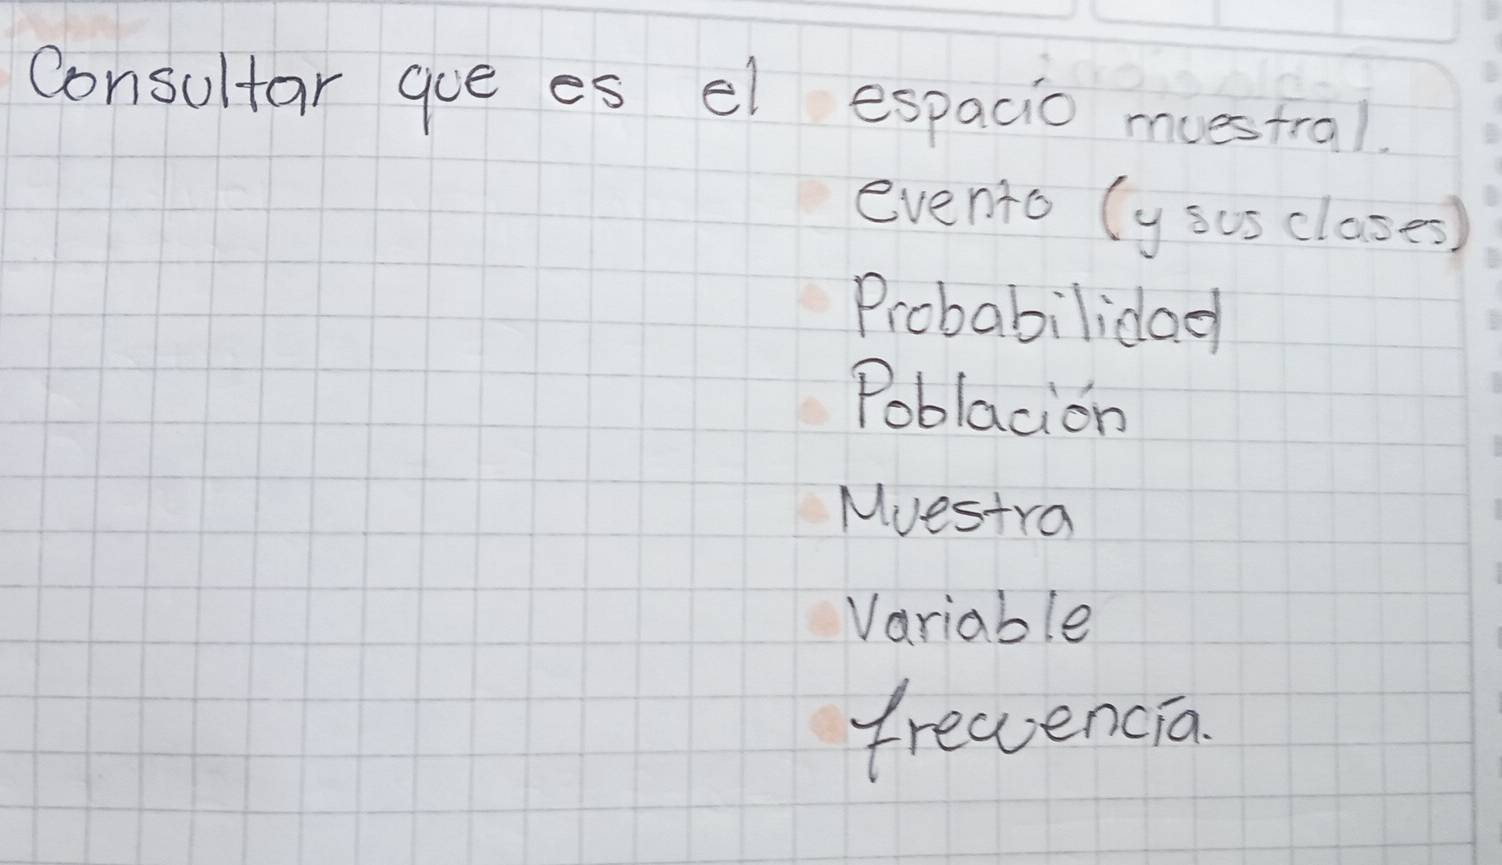 Consultar que es el espacio muestral.
evento (y sus clases)
Probabilidad
Población
Muestra
Variable
frecuencia.